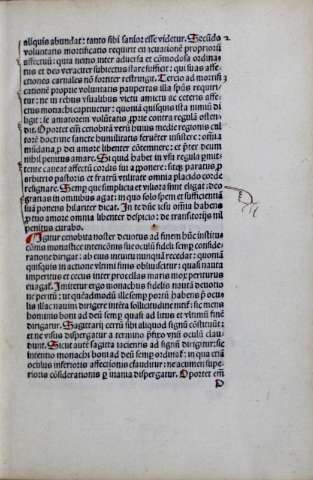 aliquis abundat: tanto sibi sanior esse videtur. Secūdo
voluntatis mortificatio requirit euacuationē proprioꝝ
affectuū: qua nemo inter aduersa et cōmodosa ordinat
tus et deo veraciter subiectus stare sufficit: qui suas affe-
ctiones carnales nō fortiter restringit. Tercio ad mortifi
cationē proprie voluntatis paupertas illa spūs requiri
tur: ne in rebus vsualibus victu amictu nec ceteris affe-
ctus monachi captiuetur: quonīa quisquis ista nimiū di
ligit: se amatorem volūtatis proprie contra regulā osten-
dit. Oportet em̄ cenobitā verū huius medie regionis cul-
torē doctrine sancte humilitatis feruēter insistere: omīa
mūdana pro dei amore libenter cōtemnere: et preter deum
nihil penitus amare. Si quid habet in vsu regula pmit-
tente caueat affectū cordis sui apponere: sitqꝫ paratus pro
arbitrio pastoris et fratrū vtilitate omnia placido corde
resignare. Semper quesimplicia et viliora sint eligat: deo
gratias in omnibus agat: in quo solo spem et sufficientiā
suā ponens hilariter dicat. In te dn̄e iesu omīa habens
pro tuo amore omnia libenter despicio: de transitorijs nil
penitus curabo.
Igitur cenobita noster deuotus ad finem hui9 institus
cōnis monastice intencōnis sue oculū fideli semper conside-
ratione dirigat: ab eius intuitu nunquā recedat: quoniā
quisquis in actione vltimi finis obliuiscitur: quasi nauta
imperitus et cecus inter procellas maris mox periturus
euagat. Imitetur ergo monachus fidelis nautā deuotio
ne peritū: vt quēadmodū ille semper portū habens pre ocu-
lis illac nauim dirigere intēta sollicitudine nitit: sic mens
hominis boni ad deū semper quasi ad litus et vltimū finē
dirigatur. Sagittarij certū sibi aliquod signū cōstituūt:
et ne visus dispergatur a termino prefixo vnū oculū clau-
dunt. Sicut autē sagitta iacientis ad signū dirigitur: sic
intentio monachi boni ad deū semper ordinat: in qua eniā
oculus inferioris affectionis clauditur: ne acumen supe-
rioris cōsiderationis per inania dispergatur. Oportet em̄
D